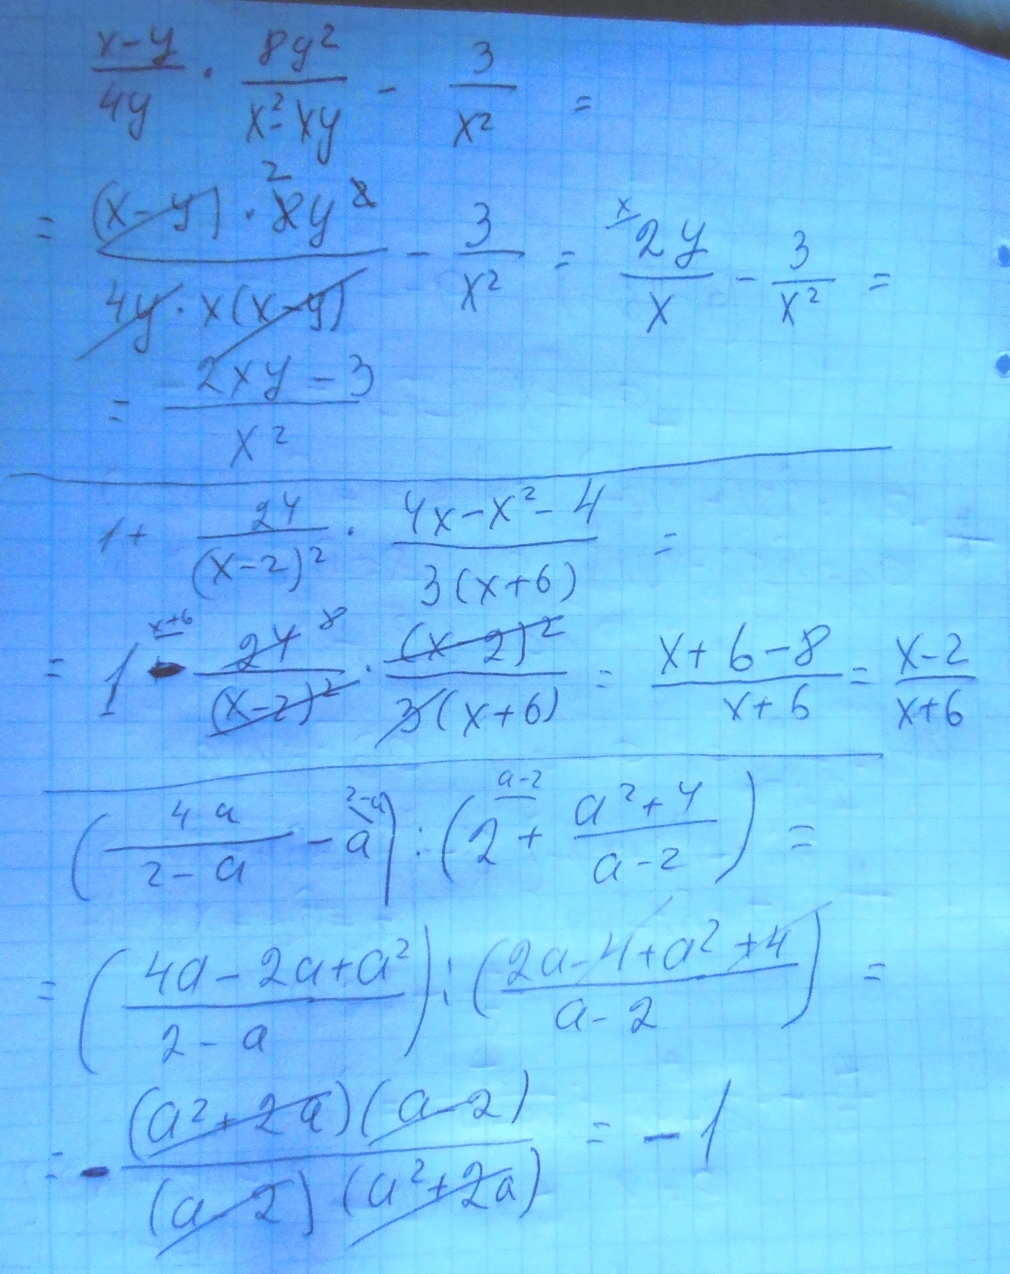 (x-y)/(4y) · (8y²)/(x²-xy) - 3/x² =
= ((x-y) · 8y² ²)/(4y · x(x-y)) - 3/x² = ˣ⁄ (2y)/x - 3/x² =
= (2xy-3)/x²
1+ 24/(x-2)² · (4x-x²-4)/(3(x+6)) =
= 1 ˣ⁺⁶⁄ - (24 ⁸)/(x-2)² · (x-2)²/(3(x+6)) = (x+6-8)/(x+6) = (x-2)/(x+6)
((4a)/(2-a) - a ²⁻ᵃ⁄) : (2 ᵃ⁻²⁄ + (a²+4)/(a-2)) =
= ((4a-2a+a²)/(2-a)) : ((2a-4+a²+4)/(a-2)) =
= - ((a²+2a)(a-2))/((a-2)(a²+2a)) = -1